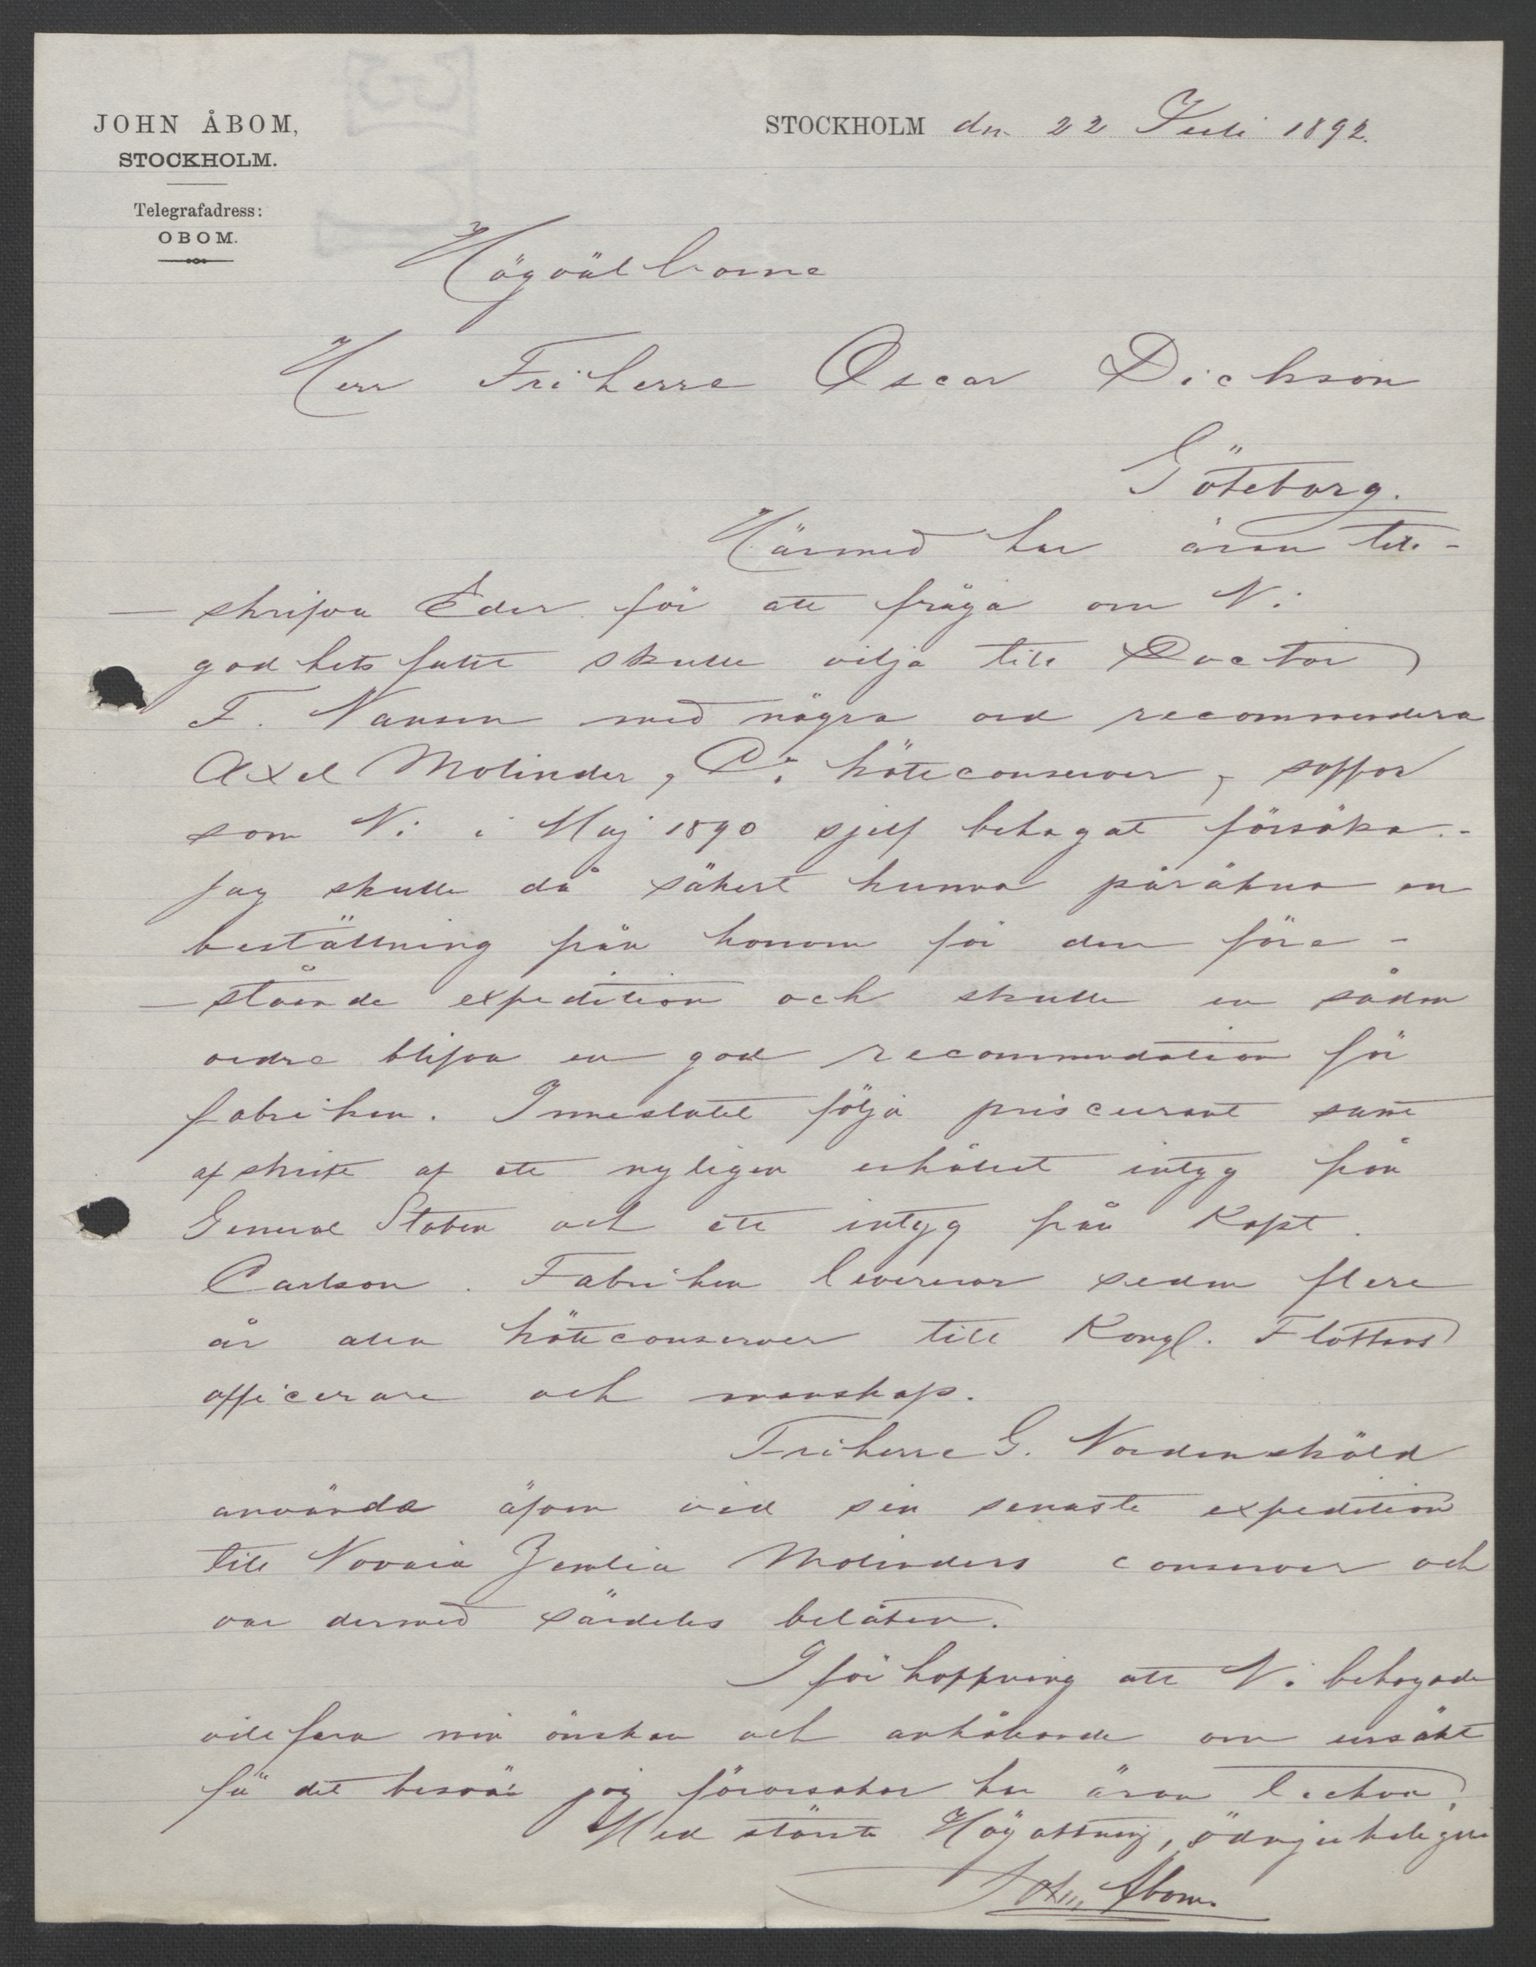 JOHN ÅBOM,
STOCKHOLM.
Telegrafadress:
OBOM.
STOCKHOLM dn 22 Juli 1892.
Högvälborne
Herr Friherre Oscar Dickson
Göteborg.
Härmed har äran till-
skrifva Eder för att fråga om Ni
godhetsfullt skulle vilja till Doctor
F. Nansen med några ord recommendera
Axel Molinder, C:i köttconserver, soppor
som Ni i Maj 1890 sjelf behagat försöka.-
Jag skulle då säkert kunna påräkna en
beställning från honom för den före-
stående expedition och skulle en sådan
ordre blifva en god recommendation för
fabriken. Inneslutet följa priscourant samt
afskrift af ett nyligen erhållet intyg från
General Staben och ett intyg från Kapt.
Carlson. Fabriken levererar sedan flere
år alla köttconserver till Kongl. Flottans
officerare och manskap.
Friherre G. Nordensköld
använde äfven vid sin senaste expedition
till Novaia Zemlia Molinders conserver och
var dermed särdeles belåten.
I förhoppning att Ni behagade
villfara min önskan och anhållande om ursäkt
för det besvär jag förorsakar har äran teckna,
Med största Högaktning, ödmjukeligen
John Åbom.